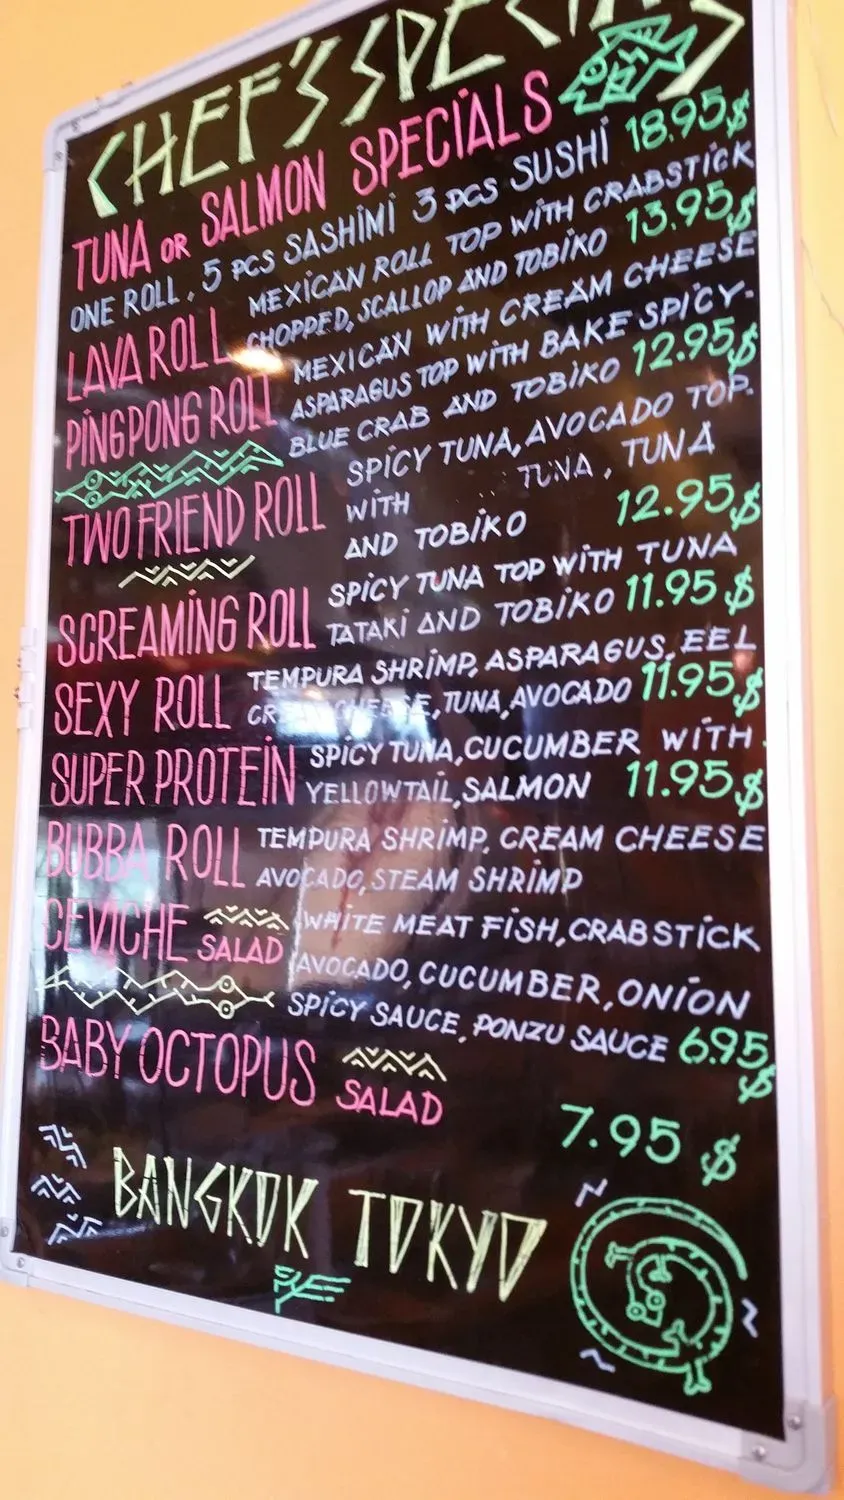 CHEF'S SPECIALS
TUNA OR SALMON SPECIALS
ONE ROLL, 5 PCS SASHIMI 3 PCS SUSHI 18.95$
LAVA ROLL MEXICAN ROLL TOP WITH CRABSTICK
CHOPPED, SCALLOP AND TOBIKO 13.95$
PINGPONG ROLL MEXICAN WITH CREAM CHEESE
ASPARAGUS TOP WITH BAKE SPICY-
BLUE CRAB AND TOBIKO 12.95$
TWO FRIEND ROLL SPICY TUNA, AVOCADO TOP-
WITH TUNA, TUNA
AND TOBIKO 12.95$
SCREAMING ROLL SPICY TUNA TOP WITH TUNA
TATAKI AND TOBIKO 11.95$
SEXY ROLL TEMPURA SHRIMP, ASPARAGUS, EEL
CREAM CHEESE, TUNA, AVOCADO 11.95$
SUPER PROTEIN SPICY TUNA, CUCUMBER WITH
YELLOWTAIL, SALMON 11.95$
BUBBA ROLL TEMPURA SHRIMP, CREAM CHEESE
AVOCADO, STEAM SHRIMP
CEVICHE SALAD WHITE MEAT FISH, CRABSTICK
AVOCADO, CUCUMBER, ONION
SPICY SAUCE, PONZU SAUCE 6.95$
BABY OCTOPUS SALAD
7.95 $
BANGKOK TOKYO